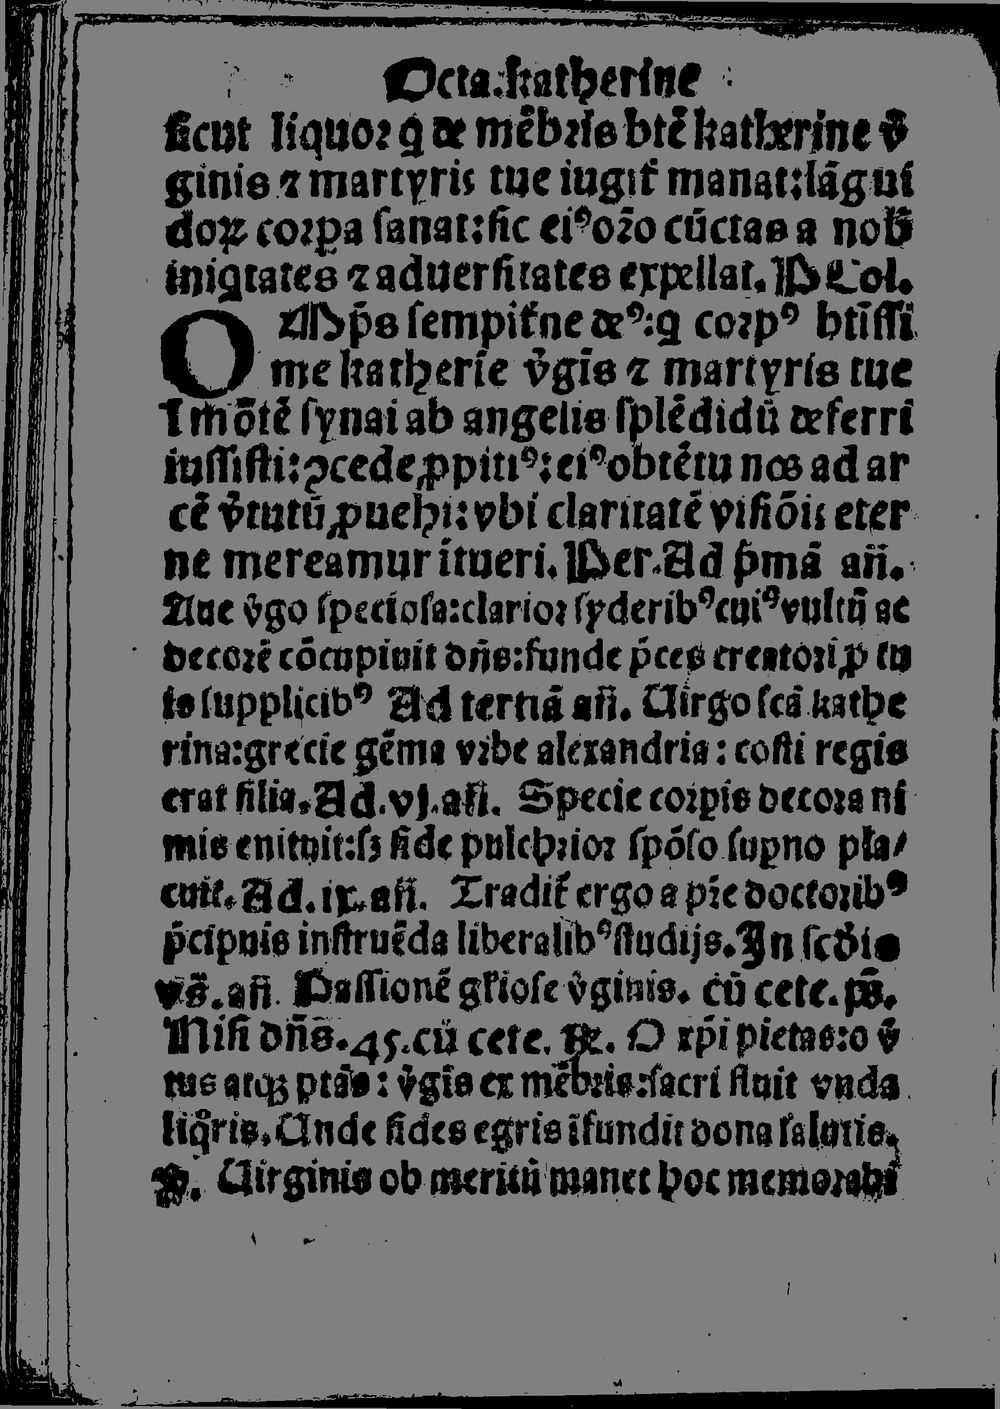 Octa.katherine
ſicut liquoꝛ q̄ de mēbꝛis btē katherine v̄
ginis ⁊ martyris tue iugit̄ manat:lāgui
doꝝ coꝛꝑa ſanat:ſic eiꝰ oꝛ̄o cūctas a nob̄
iniqtates ⁊ aduerſitates expellat. P Col.
OMp̄s ſempit̄ne deꝰ:q coꝛpꝰ btīſſi
me katherīe v̄gīs ⁊ martyris tue
ī mōtē ſynai ab angelis ſplēdidū deferri
iuſſiſti:ꝯcede ꝓpitiꝰ:eiꝰ obtētu nos ad ar
cē v̄tutū ꝓuehi:vbi claritatē viſiōis eter
ne mereamur ītueri. Per. Ad p̄mā añ.
Aue v̄go ſpecioſa:clarioꝛ ſyderibꝰ cuiꝰ vultū ac
decoꝛē cōcupiuit dñs:funde p̄ces creatoꝛi ꝓ tu
is ſupplicibꝰ Ad tertiā añ. Uirgo ſcā kathe
rina:grecie gēma vꝛbe alexandria: coſti regis
erat filia. Ad.vj.añ. Specie coꝛꝑis decoꝛa ni
mis enituit:ſꝫ fide pulchꝛioꝛ ſpōſo ſuꝑno pla/
cuit. Ad.ix.añ. Tradit̄ ergo a pꝛ̄e doctoꝛibꝰ
p̄cipuis inſtruēda liberalibꝰ ſtudijs. In ſcd̄is
vs̄.añ. Paſſionē gl̄ioſe v̄ginis. cū cete. ps̄.
Niſi dñs.45.cū cete. ꝶ. O xp̄i pietas:o v̄
tus atqꝫ ptās: v̄gīs ex mēbꝛis:ſacri fluit vnda
liq̊ris. Unde fides egris īfundit dona ſalutis.
℣. Uirginis ob meritū manet hoc memoꝛabi